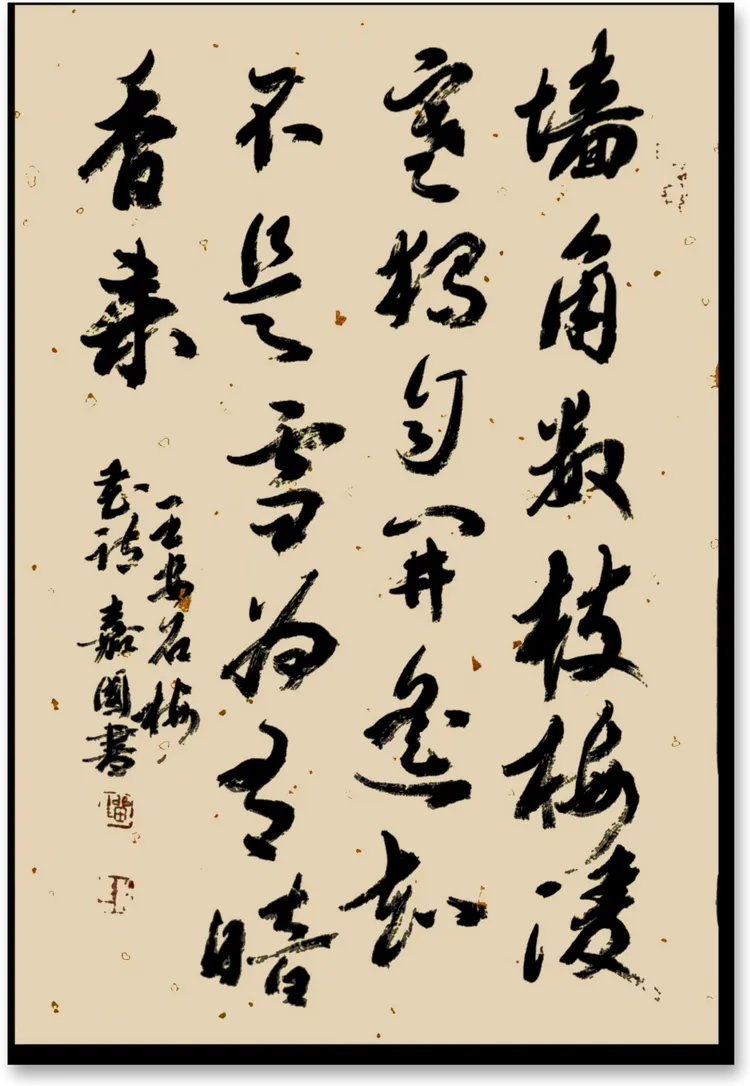 墙角数枝梅凌
寒独自开遥知
不是雪为有暗
香来
王安石梅
花诗嘉国书